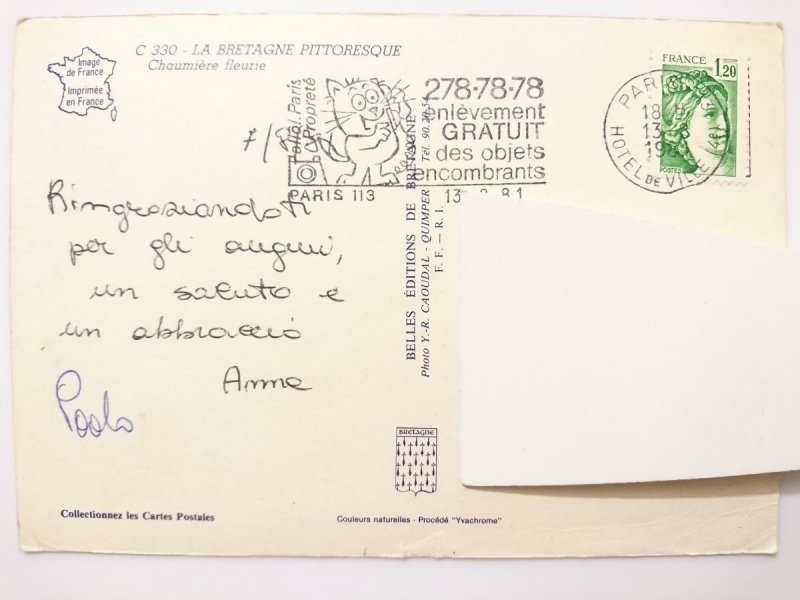 C 330 - LA BRETAGNE PITTORESQUE
Chaumière fleurie
Image
de France
Imprimée
en France
Allo! Paris
Propreté
PARIS 113
278·78·78
enlèvement
GRATUIT
des objets
encombrants
13 81
FRANCE 1,20
POSTES
PARIS
18 H
13
HOTEL DE VILLE
Ringraziandoti
per gli auguri,
un saluto e
un abbraccio
Anna
Paolo
BELLES ÉDITIONS DE BRETAGNE
Photo Y.-R. CAOUDAL - QUIMPER Tél. 90.
F. F. - R. I.
BRETAGNE
Collectionnez les Cartes Postales
Couleurs naturelles - Procédé "Yvachrome"